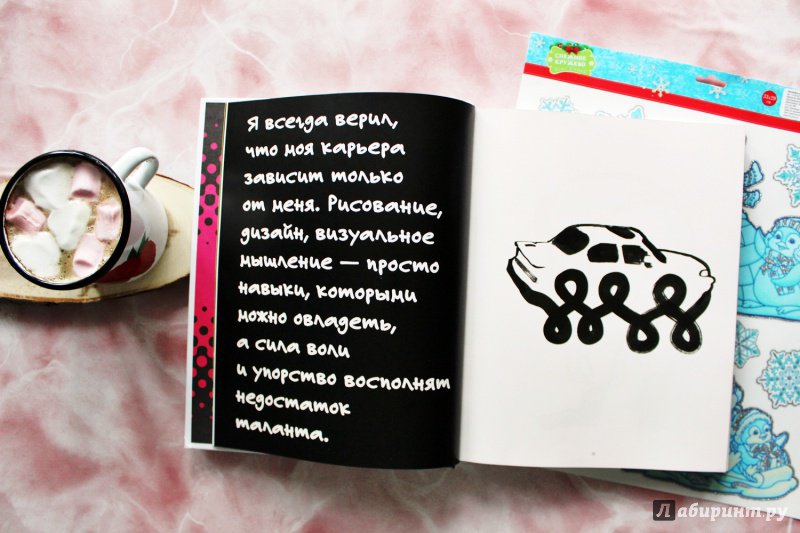 Я всегда верил,
что моя карьера
зависит только
от меня. Рисование,
дизайн, визуальное
мышление — просто
навыки, которыми
можно овладеть,
а сила воли
и упорство восполнят
недостаток
таланта.
СНЕЖНОЕ
КРУЖЕВО
Лабиринт.ру